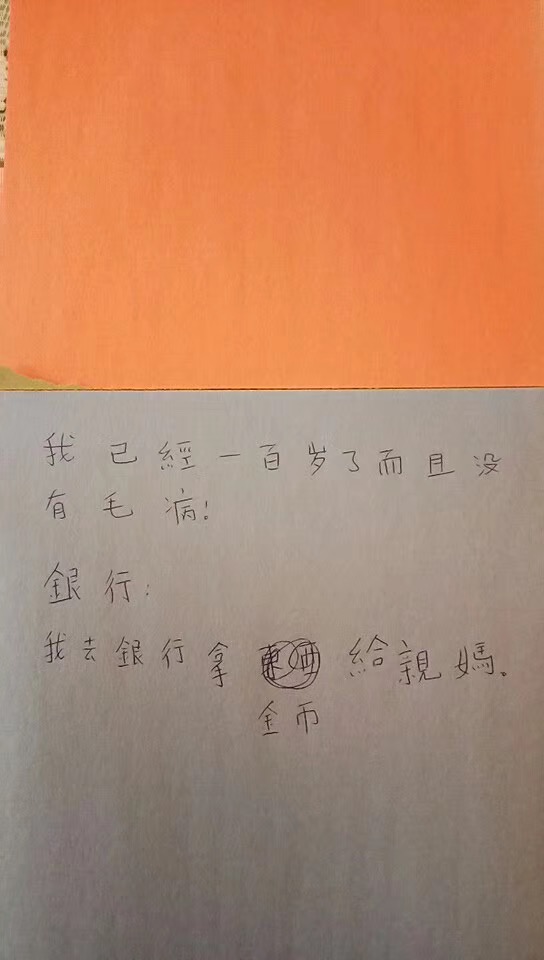 我已經一百岁了而且没
有毛病!
銀行:
我去銀行拿東西給親媽。
金币